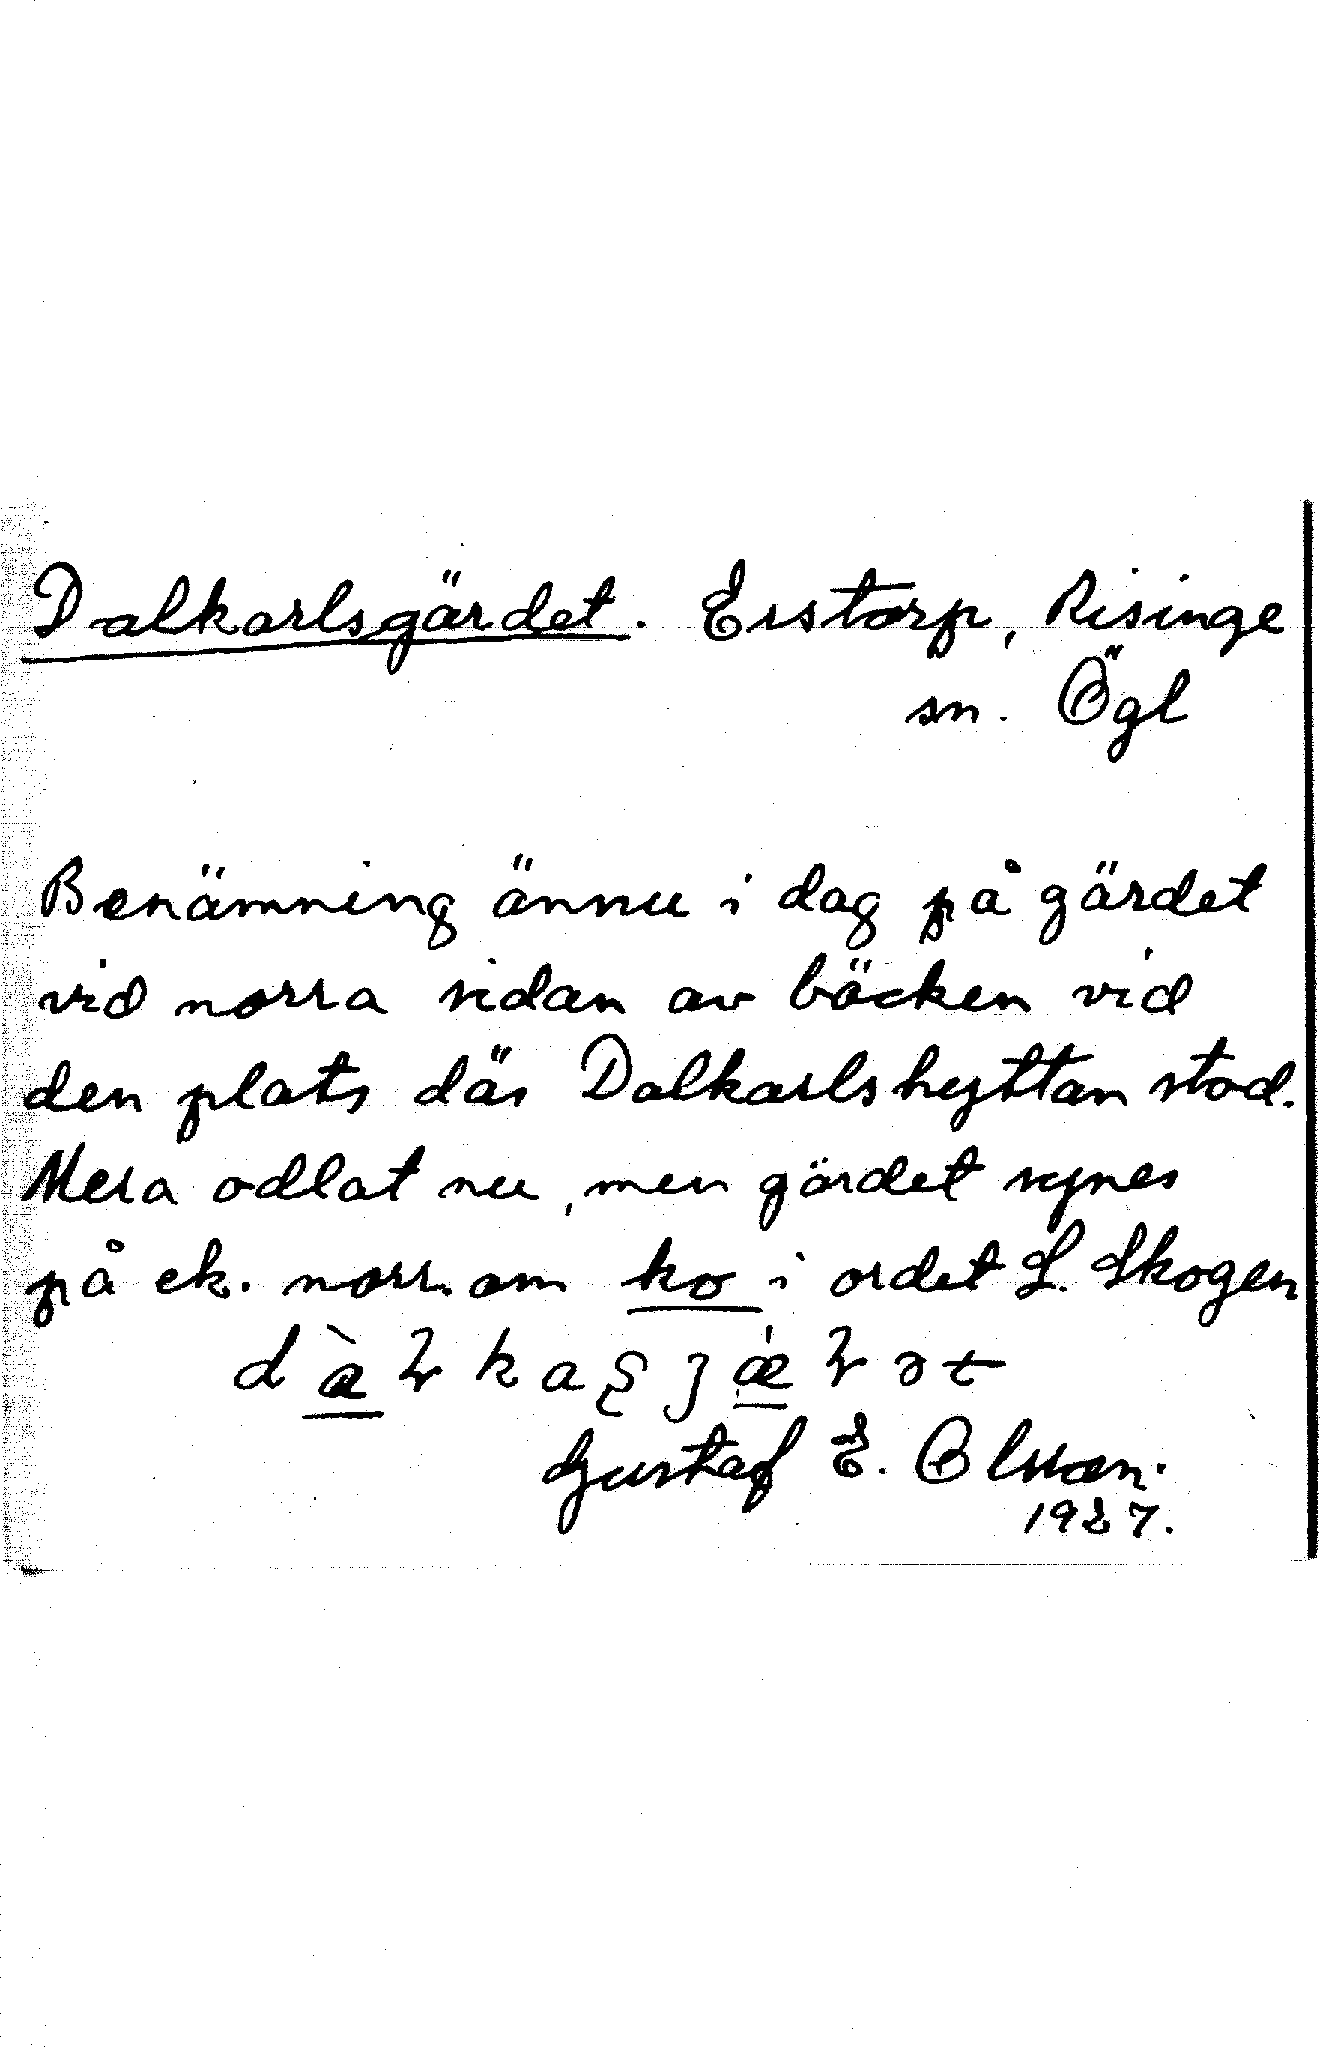 Dalkarlsgärdet. Erstorp, Risinge
sn. Ögl
Benämning ännu i dag på gärdet
vid norra sidan av bäcken vid
den plats där Dalkarlshyttan stod.
Mera odlat nu, men gärdet synes
på ek. norr om ko i ordet L. Skogen
Gustaf E. Olsson.
1927.